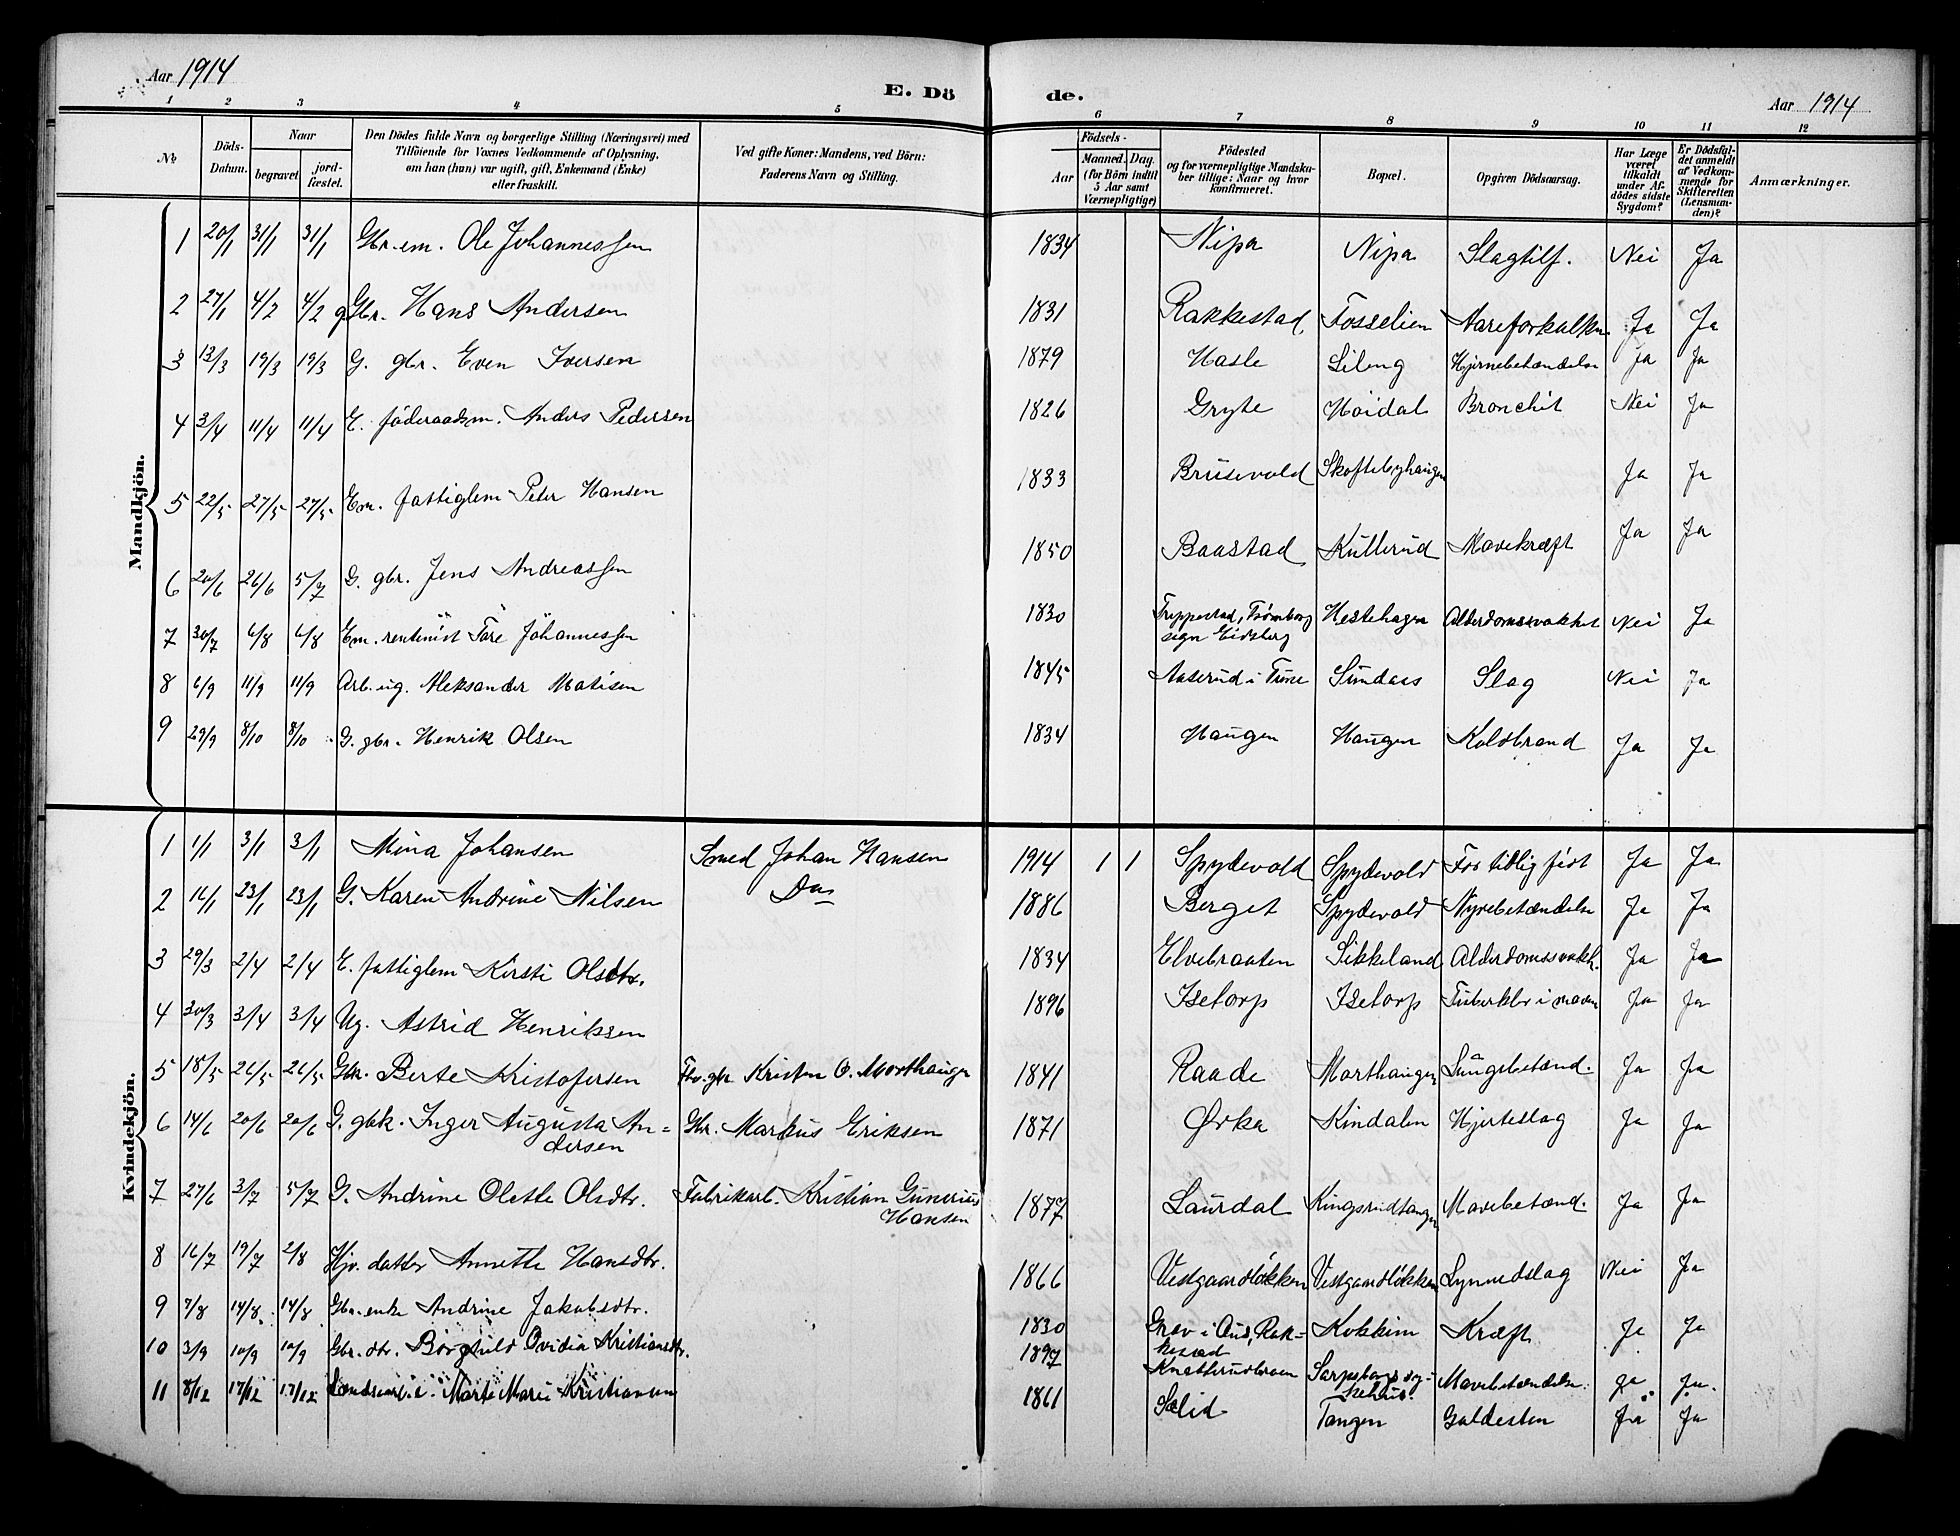 Aar 1914
E. Dö de.
Aar 1914
1 2 3 4 5 6 7 8 9 10 11 12
No
Döds-Datum.
Naar
begravet
jordfæstet.
Den Dödes fulde Navn og borgerlige Stilling (Næringsvei) med
Tilföiende for Voxnes Vedkommende af Oplysning,
om han (hun) var ugift, gift, Enkemand (Enke)
eller fraskilt.
Ved gifte Koner: Mandens, ved Börn:
Faderens Navn og Stilling.
Födsels-
Aar
Maaned. Dag.
(for Börn indtil
5 Aar samt
Værnepligtige)
Födested
og for værnepligtige Mandska-
ber tillige: Naar og hvor
konfirmeret.
Bopæl.
Opgiven Dödsaarsag.
Har Læge
været
tilkaldt
under Af-
dödes sidste
Sygdom?
Er Dödsfal-
det anmeldt
af Vedkom-
mende for
Skifteretten
(Lensman-
den)?
Anmærkninger.
Mandkjön.
1 20/1 31/1 31/1 Gbr. em. Ole Johannessen 1834 Nipa Nipa Slagtilf. Nei Ja
2 27/1 4/2 4/2 g Gbr. Hans Andersen 1831 Rakkestad Fosselien Aareforkalkn Ja Ja
3 13/3 19/3 19/3 G. gbr. Even Iversen 1879 Hasle Lileng Hjernebetændelse Ja Ja
4 3/4 11/4 11/4 E. föderaadsm. Anders Pedersen 1826 Gryte Höidal Bronchit Nei Ja
5 22/5 27/5 27/5 Em. fattiglem Peter Hansen 1833 Brusevold Skoftebyhaugen Ja Ja
6 20/6 26/6 5/7 G. gbr. Jens Andreassen 1850 Baastad Kullerud Mavekræft Ja Ja
7 30/7 6/8 6/8 Em. rentenist Tore Johannessen 1830 Treppestad, Trömborg
sogn Eidsberg Hestehagen Alderdomssvakhet Nei Ja
8 6/9 11/9 11/9 Arb. ug. Aleksander Matisen 1845 Aaserud i Tune Sundaas Slag Nei Ja
9 29/9 8/10 8/10 G. gbr. Henrik Olsen 1834 Haugen Haugen Koldbrand Ja Ja
Kvindekjön.
1 1/1 3/1 3/1 Mina Johansen Smed Johan Hansen 1914 1 1 Spydevold Spydevold For tidlig föst Ja Ja
2 16/1 23/1 23/1 G. Karen Andrine Nilsen Do 1886 Berget Spydevold Nyrebetændelse Ja Ja
3 29/3 2/4 2/4 E. fattiglem Kirsti Olsdtr. 1834 Elvebraaten Sikkeland Alderdomssvakh. Ja Ja
4 30/3 3/4 3/4 Ug. Astrid Henriksen 1896 Isetorp Isetorp Tuberklr i maven Ja Ja
5 18/5 26/5 26/5 Gbr. Berte Kristofersen Fhv. gbr Kristen O. Morthaugen 1841 Raade Morthaugen Lungebetænd. Ja Ja
6 14/6 20/6 20/6 G. gbk. Inger Augusta An=
dersen Gbr. Markus Eriksen 1871 Örka Kindalen Hjerteslag Ja Ja
7 27/6 3/7 5/7 G. Andrine Olette Olsdtr. Fabrikarb. Kristian Gunerius
Hansen 1877 Laurdal Kingsrudtangen Mavebetænd. Ja Ja
8 16/7 19/7 2/8 Hjv. datter Annette Hansdtr. 1866 Vestgaardlökken Vestgaardlökken Lynnedslag Nei Ja
9 7/8 14/8 14/8 Gbr. enke Andrine Jakobsdtr. 1830 Grav i Aud, Rak-
kestad Kokkim Kræft Ja Ja
10 3/9 10/9 10/9 Gbr. dtr. Borghild Ovidia Kristiansdtr. 1897 Knatterudbraaten Sarpsborgs syge-
hus. Mavebetændelse. ja ja.
11 8/12 17/12 17/12 Marte Marie Kristiansen 1861 Solid Tangen Galdesten Ja Ja